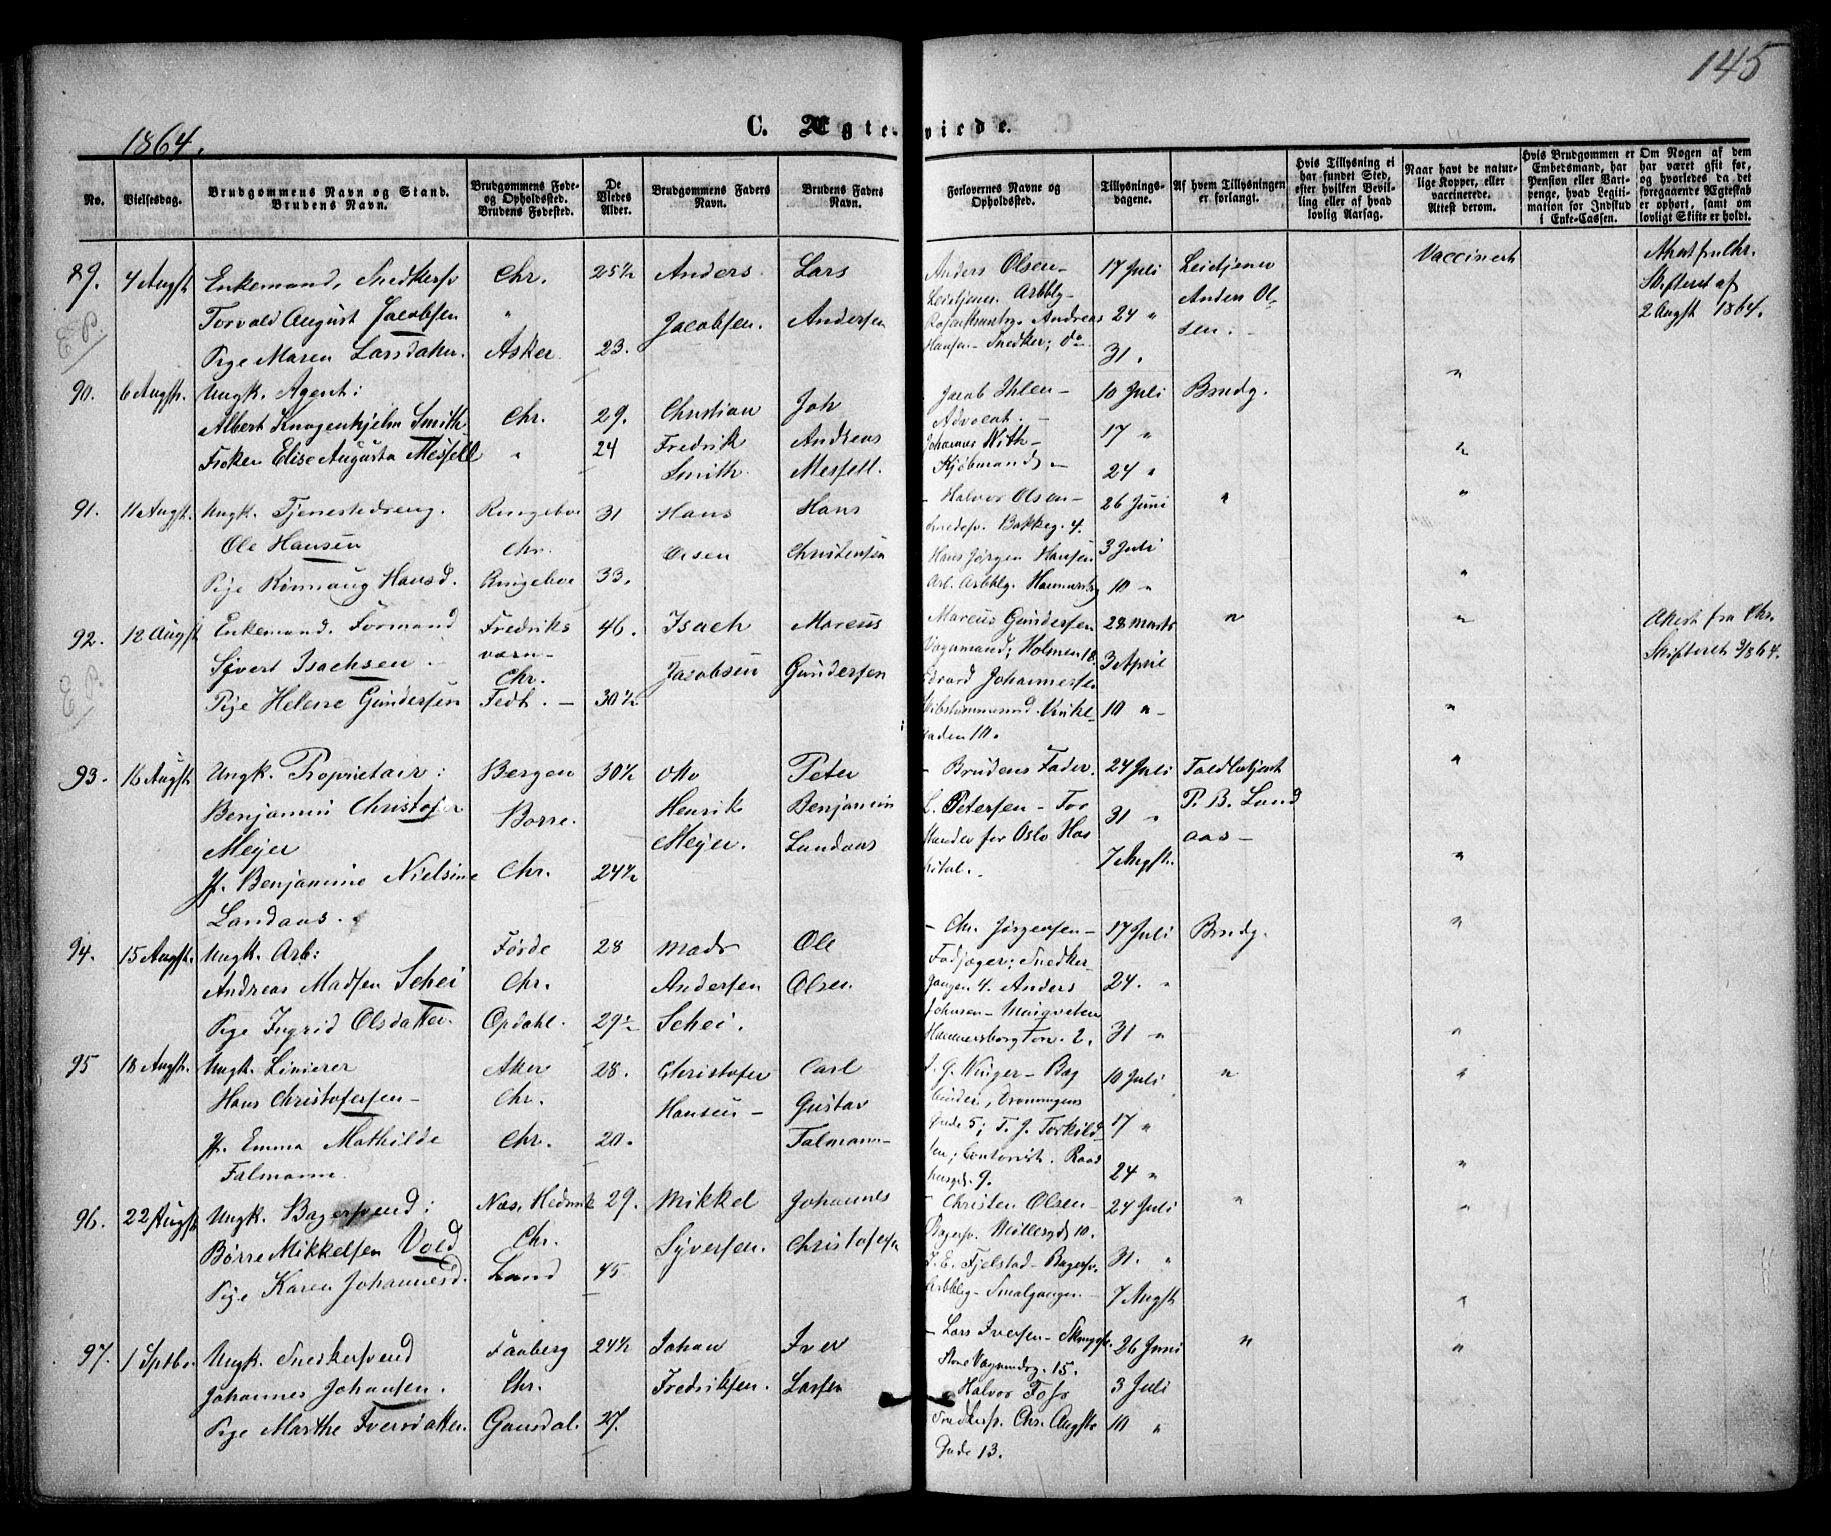 145
1864.
C. Ægteviede.
No.
Vielsesdag.
Brudgommens Navn og Stand.
Brudens Navn.
Brudgommens Føde-
og Opholdssted.
Brudens Fødested.
De
Viedes
Alder.
Brudgommens Faders
Navn.
Brudens Faders
Navn.
Forlovernes Navne og
Opholdssted.
Tillysnings-
dagene.
Af hvem Tillysningen
er forlangt.
Hvis Tillysning ei
har fundet Sted,
efter hvilken Bevil-
ling eller af hvad
lovlig Aarsag.
Naar havt de natur-
lige Kopper, eller
vaccinerede.
Attest derom.
Hvis Brudgommen er
Embedsmand, har
Pension eller Vart-
penge, hvad Legiti-
mation for Indskud
i Enke-Cassen.
Om Nogen af dem
har været gift før,
og hvorledes da det
foregaaende Ægteskab
er ophørt, samt om
lovligt Skifte er holdt.
89. 4 Augst Enkemand, Snedkersv Chr. 25½ Anders Lars Anders Olsen- 17 Juli Leietjener Vaccineret
Torvald August Jacobsen " Jacobsen. Andersen Leietjener Arbblg- 24 " Anders Ol-
Andreas sen.
Pige Maren Larsdatter. Asker 23. Hansen- Snedker; do 31.
Skifteret af
2 Augst 1864.
E P.
90. 6 Augst. Ungk. Agent: Jacob Ihlen- 10 Juli Brudg. "
Albert Knagenhjelm Smith Chr. 29. Christian Joh Advocat.- 17 "
Frøken Elise Augusta Mesfell " 24 Fredrik Andreas Johannes With- "
Smith. Mesfell. Kjøbmand- 24 "
91. 11 Augst. Ungk. Tjenestedreng. Ringebo 31 Hans Hans - Halvor Olsen- 26 Juni " "
Ole Hansen Chr. Olsen Christensen Bakkeg. 4. 3 Juli
Hans Jørgen Hansen
Pige Rønnaug Hansd. Ringeboe 33. Arb. Arbblg. Hammersbg 10 " "
92. 12 Augst Enkemand. Formand Fredriks 46. Isach Marcus Marcus Gundersen 28 Marts " " Attest fra Chr.
Syvert Isachsen. værn- Jacobsen Gundersen Vognmand; Holmen 18. 3 April Skifteret 2/8 64.
Chr.
Edvard Johannesen
Pige Helene Gundersen Fedt. - 30½ 10 " "
gaden 10.
E P.
93. 16 Augst Ungk. Proprietair: Bergen 30½ Otto Peter - Brudens Fader. 24 Juli Toldbetjent "
Benjamin Christofer Borre. Henrik Benjamin L. Petersen- For 31 " P. B. Land
Mejer Mejer. Landaas stander for Oslo Hos 7 Augst. aas- "
Jf. Benjamine Nielsine Chr. 24½ pital.
Landaas.
94. 15 Augst. Ungk. Arb: Førde 28 Mads Ole - Chr. Jørgensen- 17 Juli Brudg. "
Andreas Madsen Schei Chr. Andersen Olsen Snedker 24. "
gangen 4. Anders
Pige Ingrid Olsdatter. Opdahl. 29½ Schei. Johnsen-
Hammersborg Torv. 2. 31 " "
95 18 Augst. Ungk. Linierer Aker 28. Christofer Carl J. G. Winger- Bog 10 Juli " "
Hans Christofersen- Chr. Hansen- Gustav binder, Dronningens
Jf. Emma Mathilde Chr. 20. Talmann- Gade 5; T. J. Torkild 17 "
Falmann. sen; Contorist. Raad
husgd. 9. 24 " "
96. 22 Augst Ungk. Bagersvend: Næs, Hedmrk 29. Mikkel Johannes - Christen Olsen- 24 Juli " "
Børre Mikkelsen Vold Chr. Syversen. Christofersn Bagersv. Møllergd 10.
Pige Karen Johannesd. Land 45 J. E. Fjelstad- Bagersv. 31. "
Arbblg- Smalgangen- 7 Augst "
97. 1 Septbr. Ungk. Snedkersvend Faaberg 24½ Johan Iver - Lars Iversen- 26 Juni " "
Store Vognmdsg. 15.
Johannes Johansen. Chr. Fredriksen. Larsen Halvor Foss 3 Juli
Pige Marthe Iversdatter. Gausdal. 27. Snedkersv. Chr. Augsts 10 "
Gade 13.